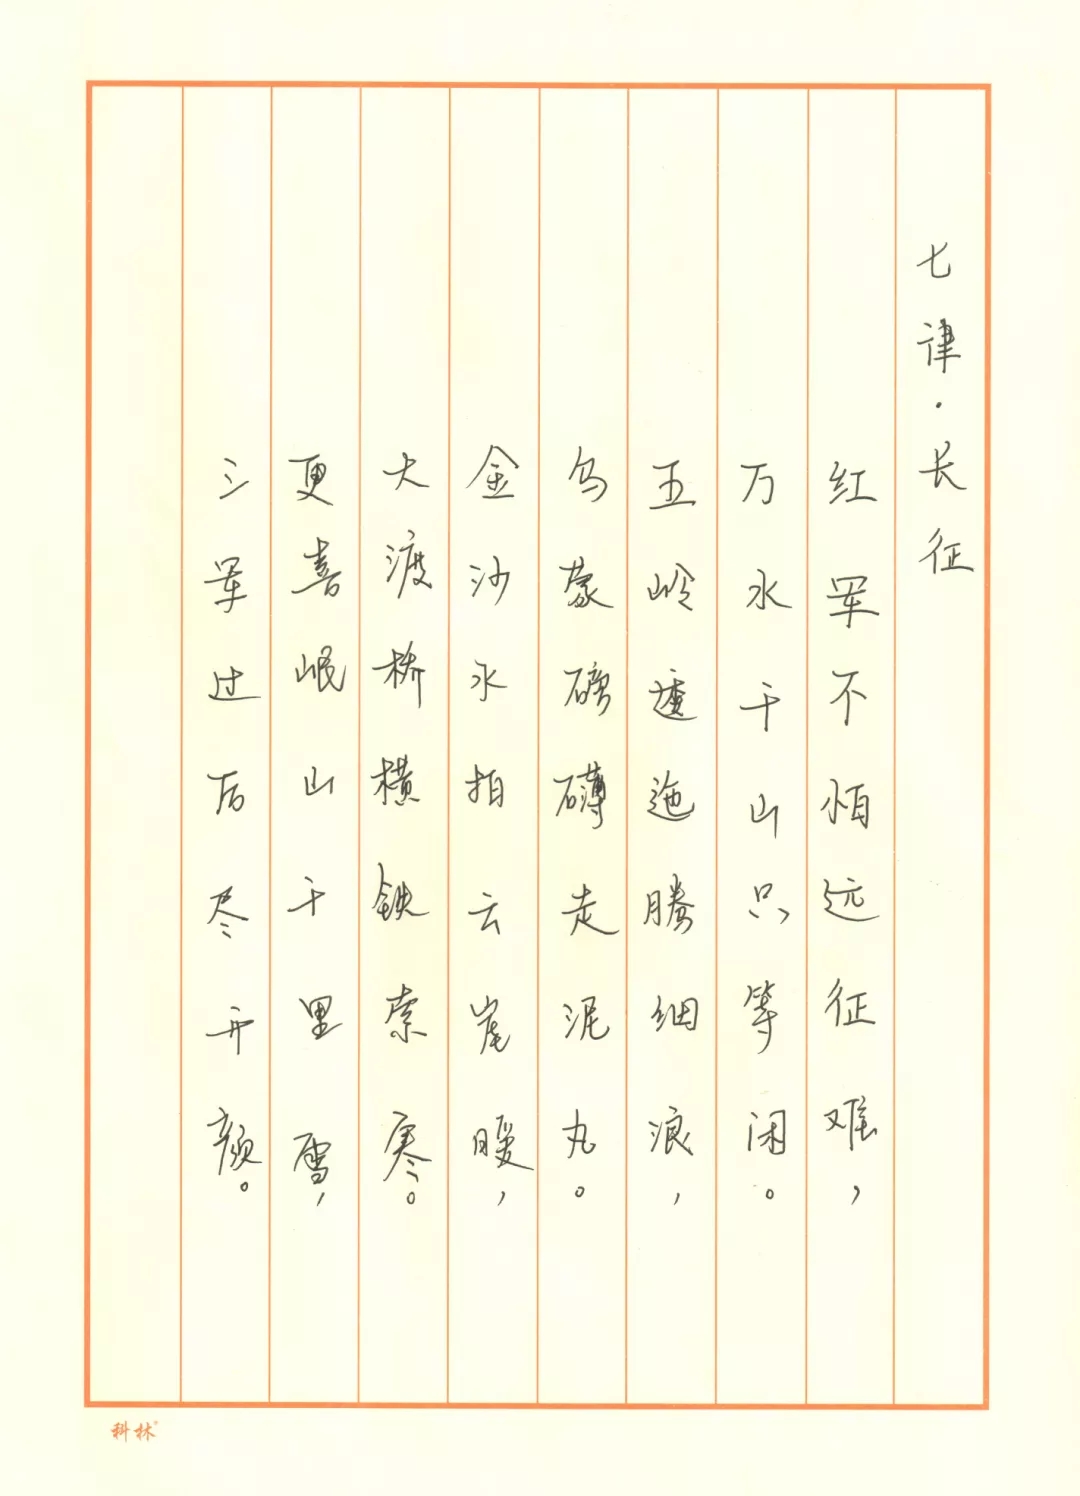 七律·长征
红军不怕远征难，
万水千山只等闲。
五岭逶迤腾细浪，
乌蒙磅礴走泥丸。
金沙水拍云崖暖，
大渡桥横铁索寒。
更喜岷山千里雪，
三军过后尽开颜。
科林